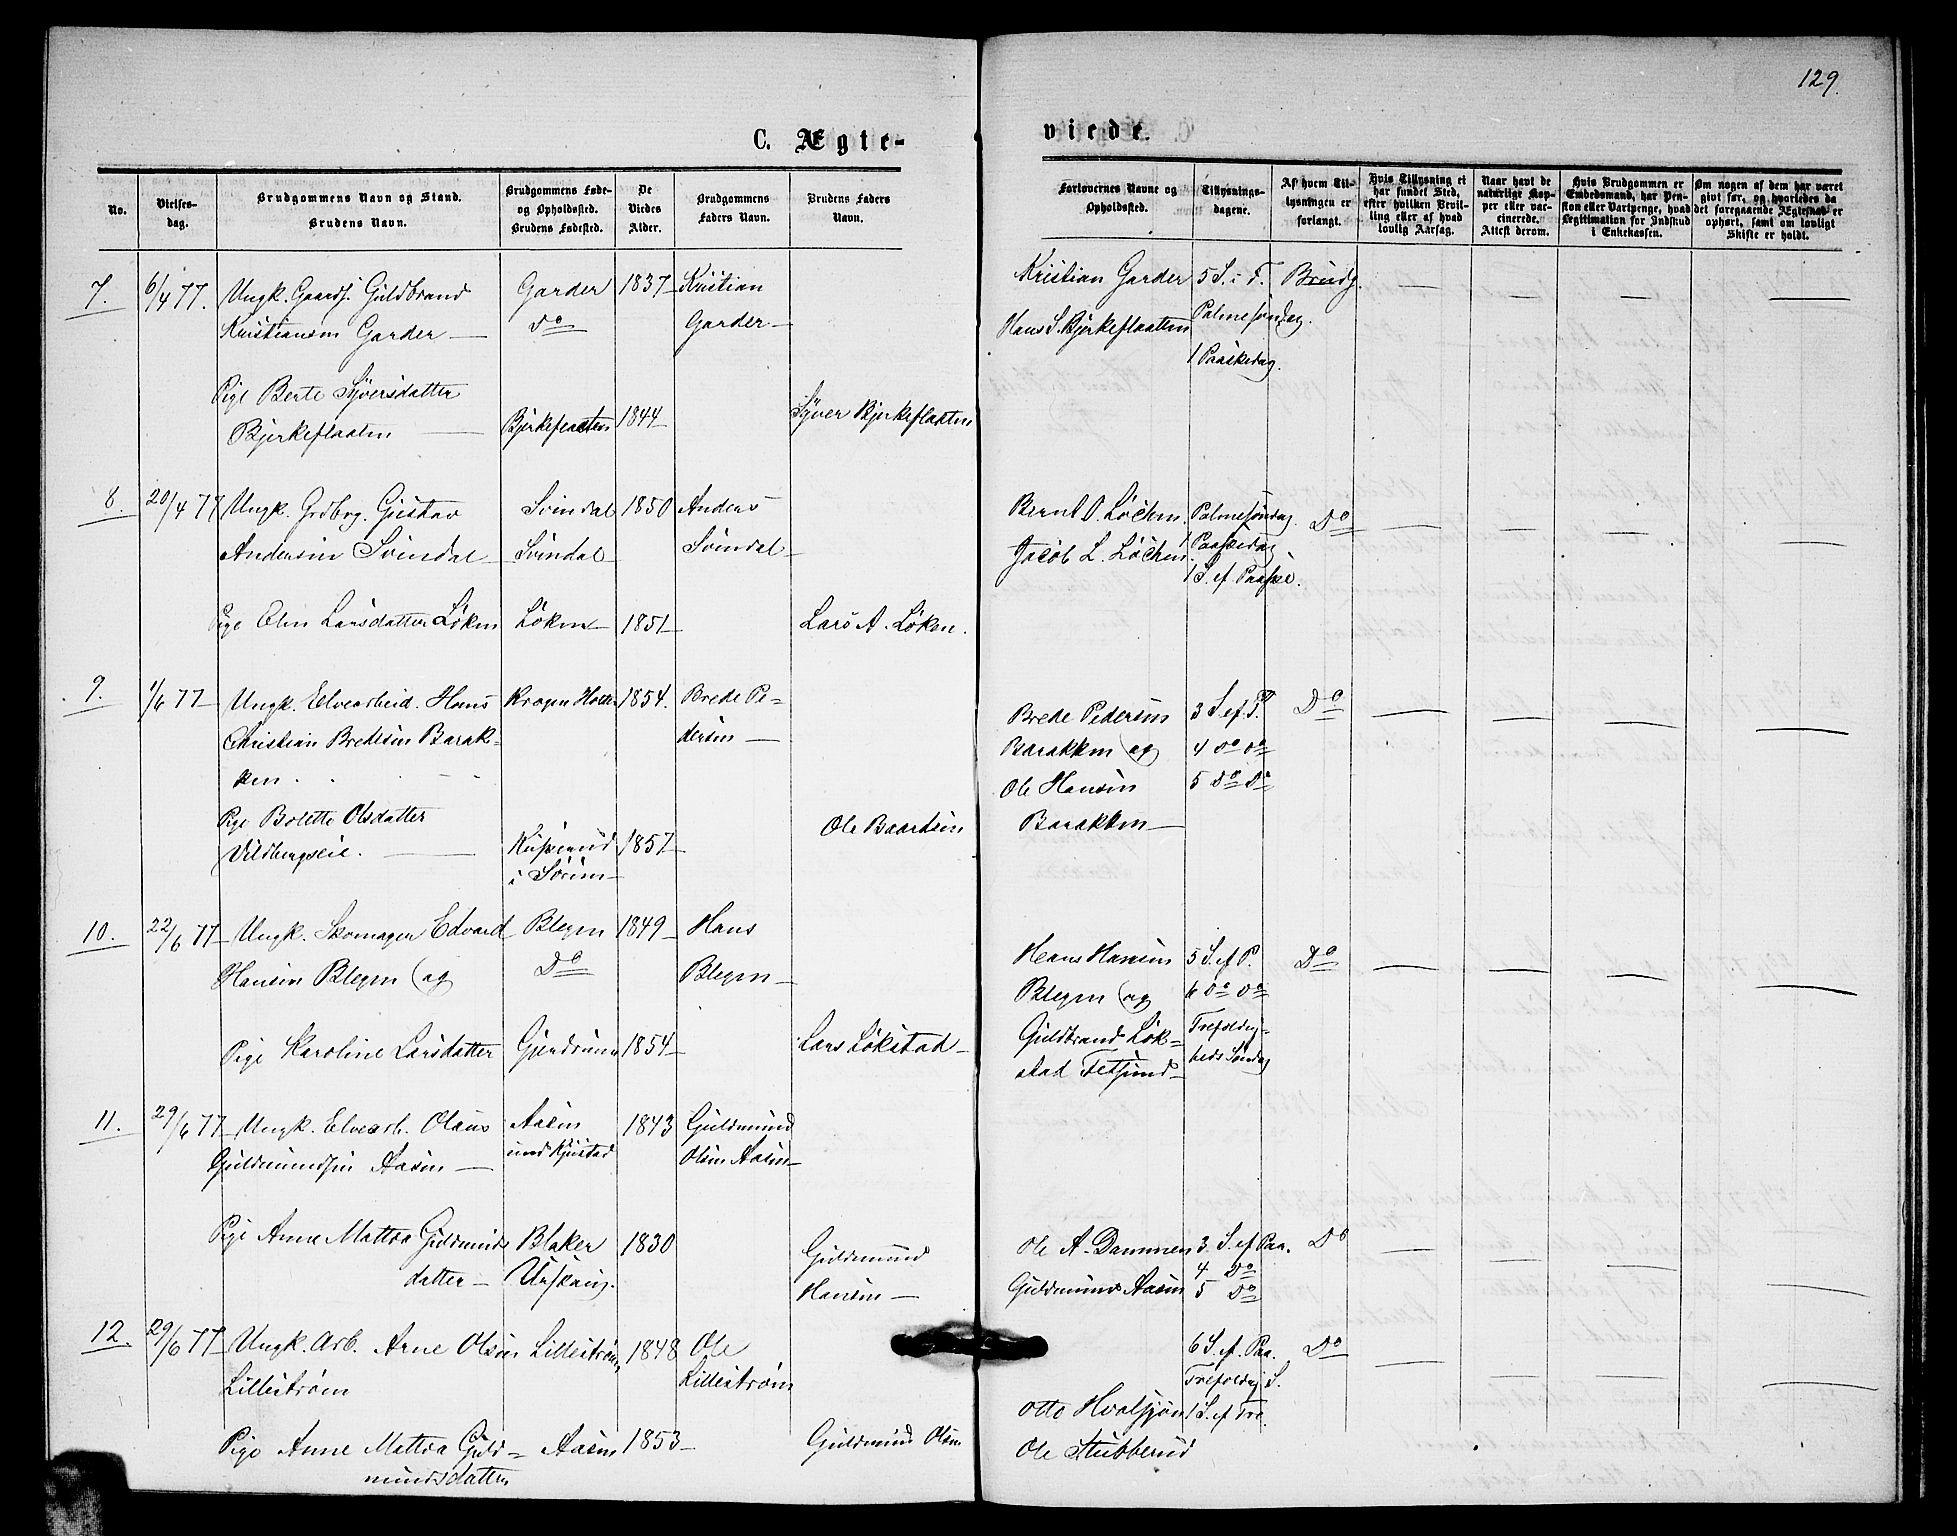 129.
C. Ægte-
viede.
No.
Vielses-
dag.
Brudgommens Navn og Stand.
Brudens Navn.
Brudgommens Føde-
og Opholdssted.
Brudens Fødested.
De
Viedes
Alder.
Brudgommens
Faders Navn.
Brudens Faders
Navn.
Forlovernes Navne og
Opholdssted.
Tillysnings-
dagene.
Af hvem Til-
lysningen er
forlangt.
Hvis Tillysning ei
har fundet Sted,
efter hvilken Bevil-
ling eller af hvad
lovlig Aarsag.
Naar havt de
naturlige Kop-
per eller vac-
cinerede.
Attest derom.
Hvis Brudgommen er
Embedsmand, har Pen-
sion eller Vartpenge, hvad
Legitimation for Indskud
i Enkekassen.
Om nogen af dem har været
gift før, og hvorledes da
det foregaaende Ægteskab er
ophørt, samt om lovligt
Skifte er holdt.
7. 6/4 77. Ungk. Gaardf. Guldbrand Garder 1837 Kristian
Kristiansen Garder — Do Garder —
Pige Berte Syversdatter
Bjerkeflaaten — Bjerkeflaaten 1844 — Syver Bjerkeflaaten
Kristian Garder 5 S. i F. Brudg. — — — —
Hans S. Bjerkeflaaten Palmesøndag.
1 Paaskedag.
8. 20/4 77 Ungk. Grdbrg. Gustav Svindal 1850 Anders
Andersen Svindal — Svindal — Svindal —
Pige Elen Larsdatter Løken Løken — 1851 — Lars A. Løken.
Bernt O. Løchen. Palmesøndag. Do — — — —
Jacob L. Løchen. 1 Paaskedag
1 S. ef Paaske.
9. 1/6 77 — Ungk. Elvearbeid. Hans Kragen Holter 1854. Brede Pe-
Christian Bredesen Barak- dersen —
ken.
Pige Bolette Olsdatter Ole Baardsen
Vildbergseie. — 1857 —
i Sørum —
Brede Pedersen 3 S. ef. P. Do — — — —
Barakken og 4 do do
Ole Hansen 5 Do Do
Barakken —
10. 22/6 77 — Ungk. Skomager Edvard Blegen 1849 — Hans
Hansen Blegen og Do Blegen —
Pige Karoline Larsdatter Gjerdrum 1854 — Lars Løkstad —
Hans Hansen 5 S. ef P. Do — — — —
Blegen og 6 do do
Guldbrand Løk- Trefoldig-
stad Fetsund — heds Søndag
11. 29/6 77 — Ungk. Elvearb. Olaus Aasen 1843 Guldmund
Guldmundsen Aasen — Olsen Aasen —
Pige Anne Mathea Guldmunds Blaker 1830 Guldmund
datter — Urskoug. Hansen —
Ole A. Dammen 3 S. ef Paa. Do — — — —
4 Do
Guldmund Aasen 5 Do
12. 29/6 77 Ungk. Arb. Arne Olsen Lillestrøm, 1848 Ole
Lillestrøm Lillestrøm
Pige Anne Mathea Guld- Aasen 1853 — Guldmund Olsen
mundsdatter
6 S. ef. Paa. Do — — — —
Trefoldig S.
Otto Hvalsjøn 1 S. ef Tre.
Ole Stubberud